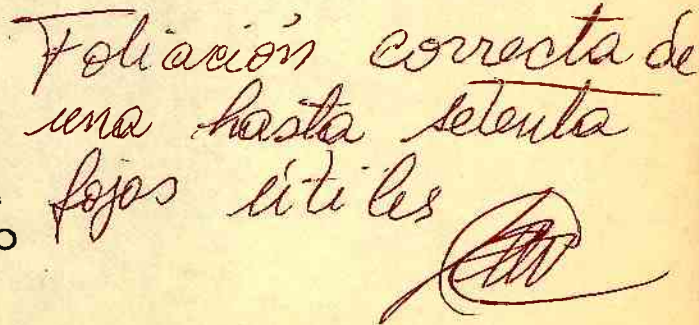 Foliación correcta de
una hasta setenta
fojas útiles